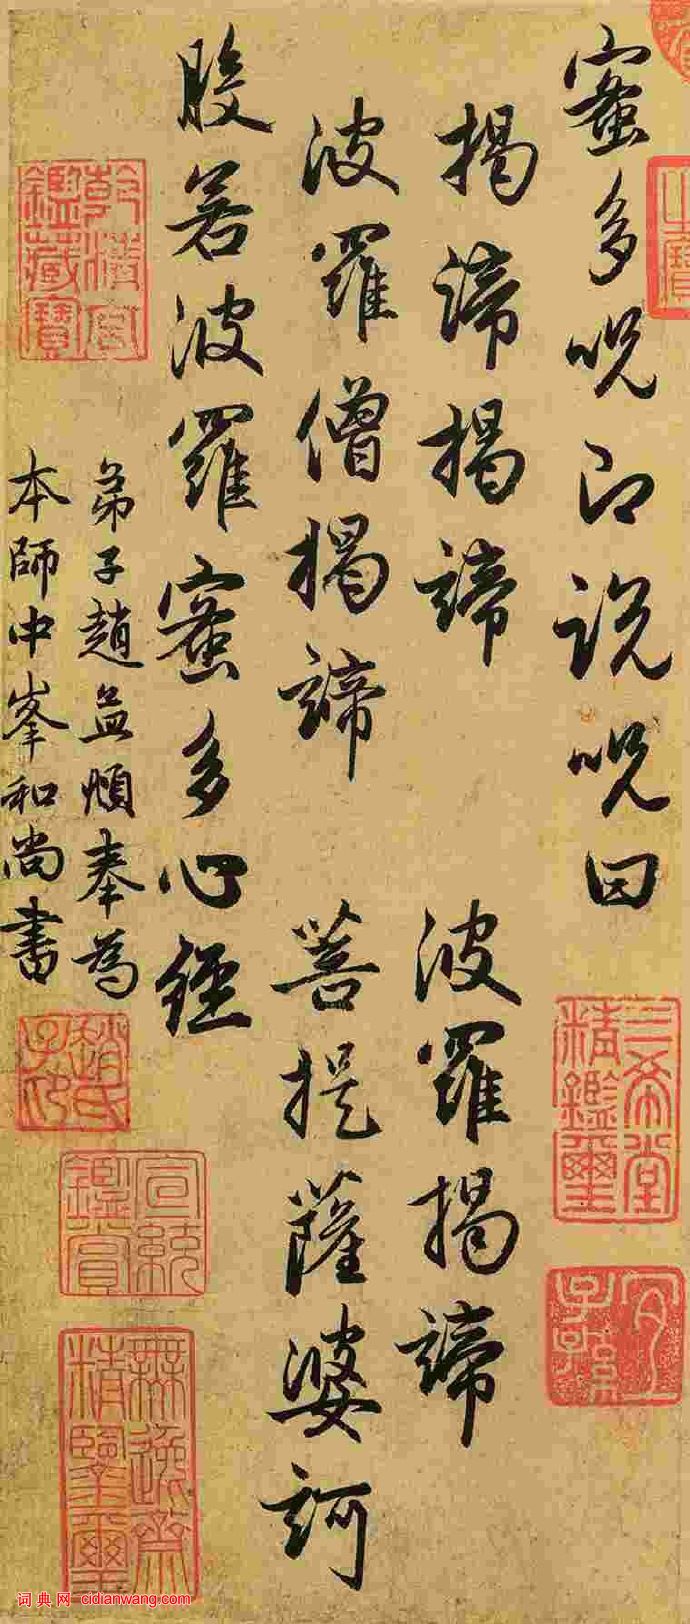 蜜多呪即說呪曰
揭諦揭諦 波羅揭諦
波羅僧揭諦 菩提薩婆訶
般若波羅蜜多心經
弟子趙孟頫奉為
本師中峯和尚書
乾清宮鑑藏寶
趙氏子昂
宣統鑑賞
無逸齋精鑒璽
三希堂精鑑璽
宜子孫
詞典网 cidianwang.com